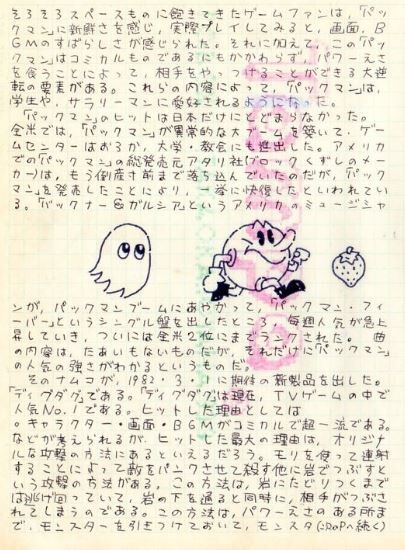 そろそろスペースものに飽きてきたゲームファンは、「パッ
クマン」に新鮮さを感じ、実際プレイしてみると、画面、B
GMのすばらしさが感じられた。それに加えて、この「パック
マン」はコミカルものであるにもかかわらず、パワーえさ
を食うことによって、相手をやっつけることができる大逆
転の要素がある。これらの内容によって、「パックマン」は、
学生や、サラリーマンに愛好されるようになった。
「パックマン」のヒットは日本だけにとどまらなかった。
全米では、「パックマン」が異常的な大ブームを築いて、ゲー
ムセンターはおろか、大学・教会にも進出した。アメリカ
での「パックマン」の総発売元アタリ社(ブロックくずしのメー
カー)は、もう倒産寸前まで落ち込んでいたのだが、「パック
マン」を発売したことにより、一挙に快復したといわれてい
る。「バックナー&ガルシア」というアメリカのミュージシャ
ンが、パックマンブームにあやかって、「パックマン・フィ
ーバー」というシングル盤を出したところ、毎週人気が急上
昇していき、ついには全米2位にまでランクされた。曲
の内容は、たあいもないものだが、それだけに「パックマン」
の人気の強さがわかるというものだ。
そのナムコが、1982・3・1に期待の新製品を出した。
「ディグダグ」である。「ディグダグ」は現在、TVゲームの中で
人気No.1である。ヒットした理由としては
○キャラクター・画面・BGMがコミカルで超一流である。
などが考えられるが、ヒットした最大の理由は、オリジナ
ルな攻撃の方法にあるといえるだろう。モリを使って連射
することによって敵をパンクさせて殺す他に岩でつぶすと
いう攻撃の方法がある。この方法は、岩にたどりつくまで
は逃げ回っていて、岩の下を通ると同時に、相手がつぶさ
れてしまうのである。この方法は、パワーえさのある所ま
で、モンスターを引きつけておいて、モンスタ(次のPへ続く)